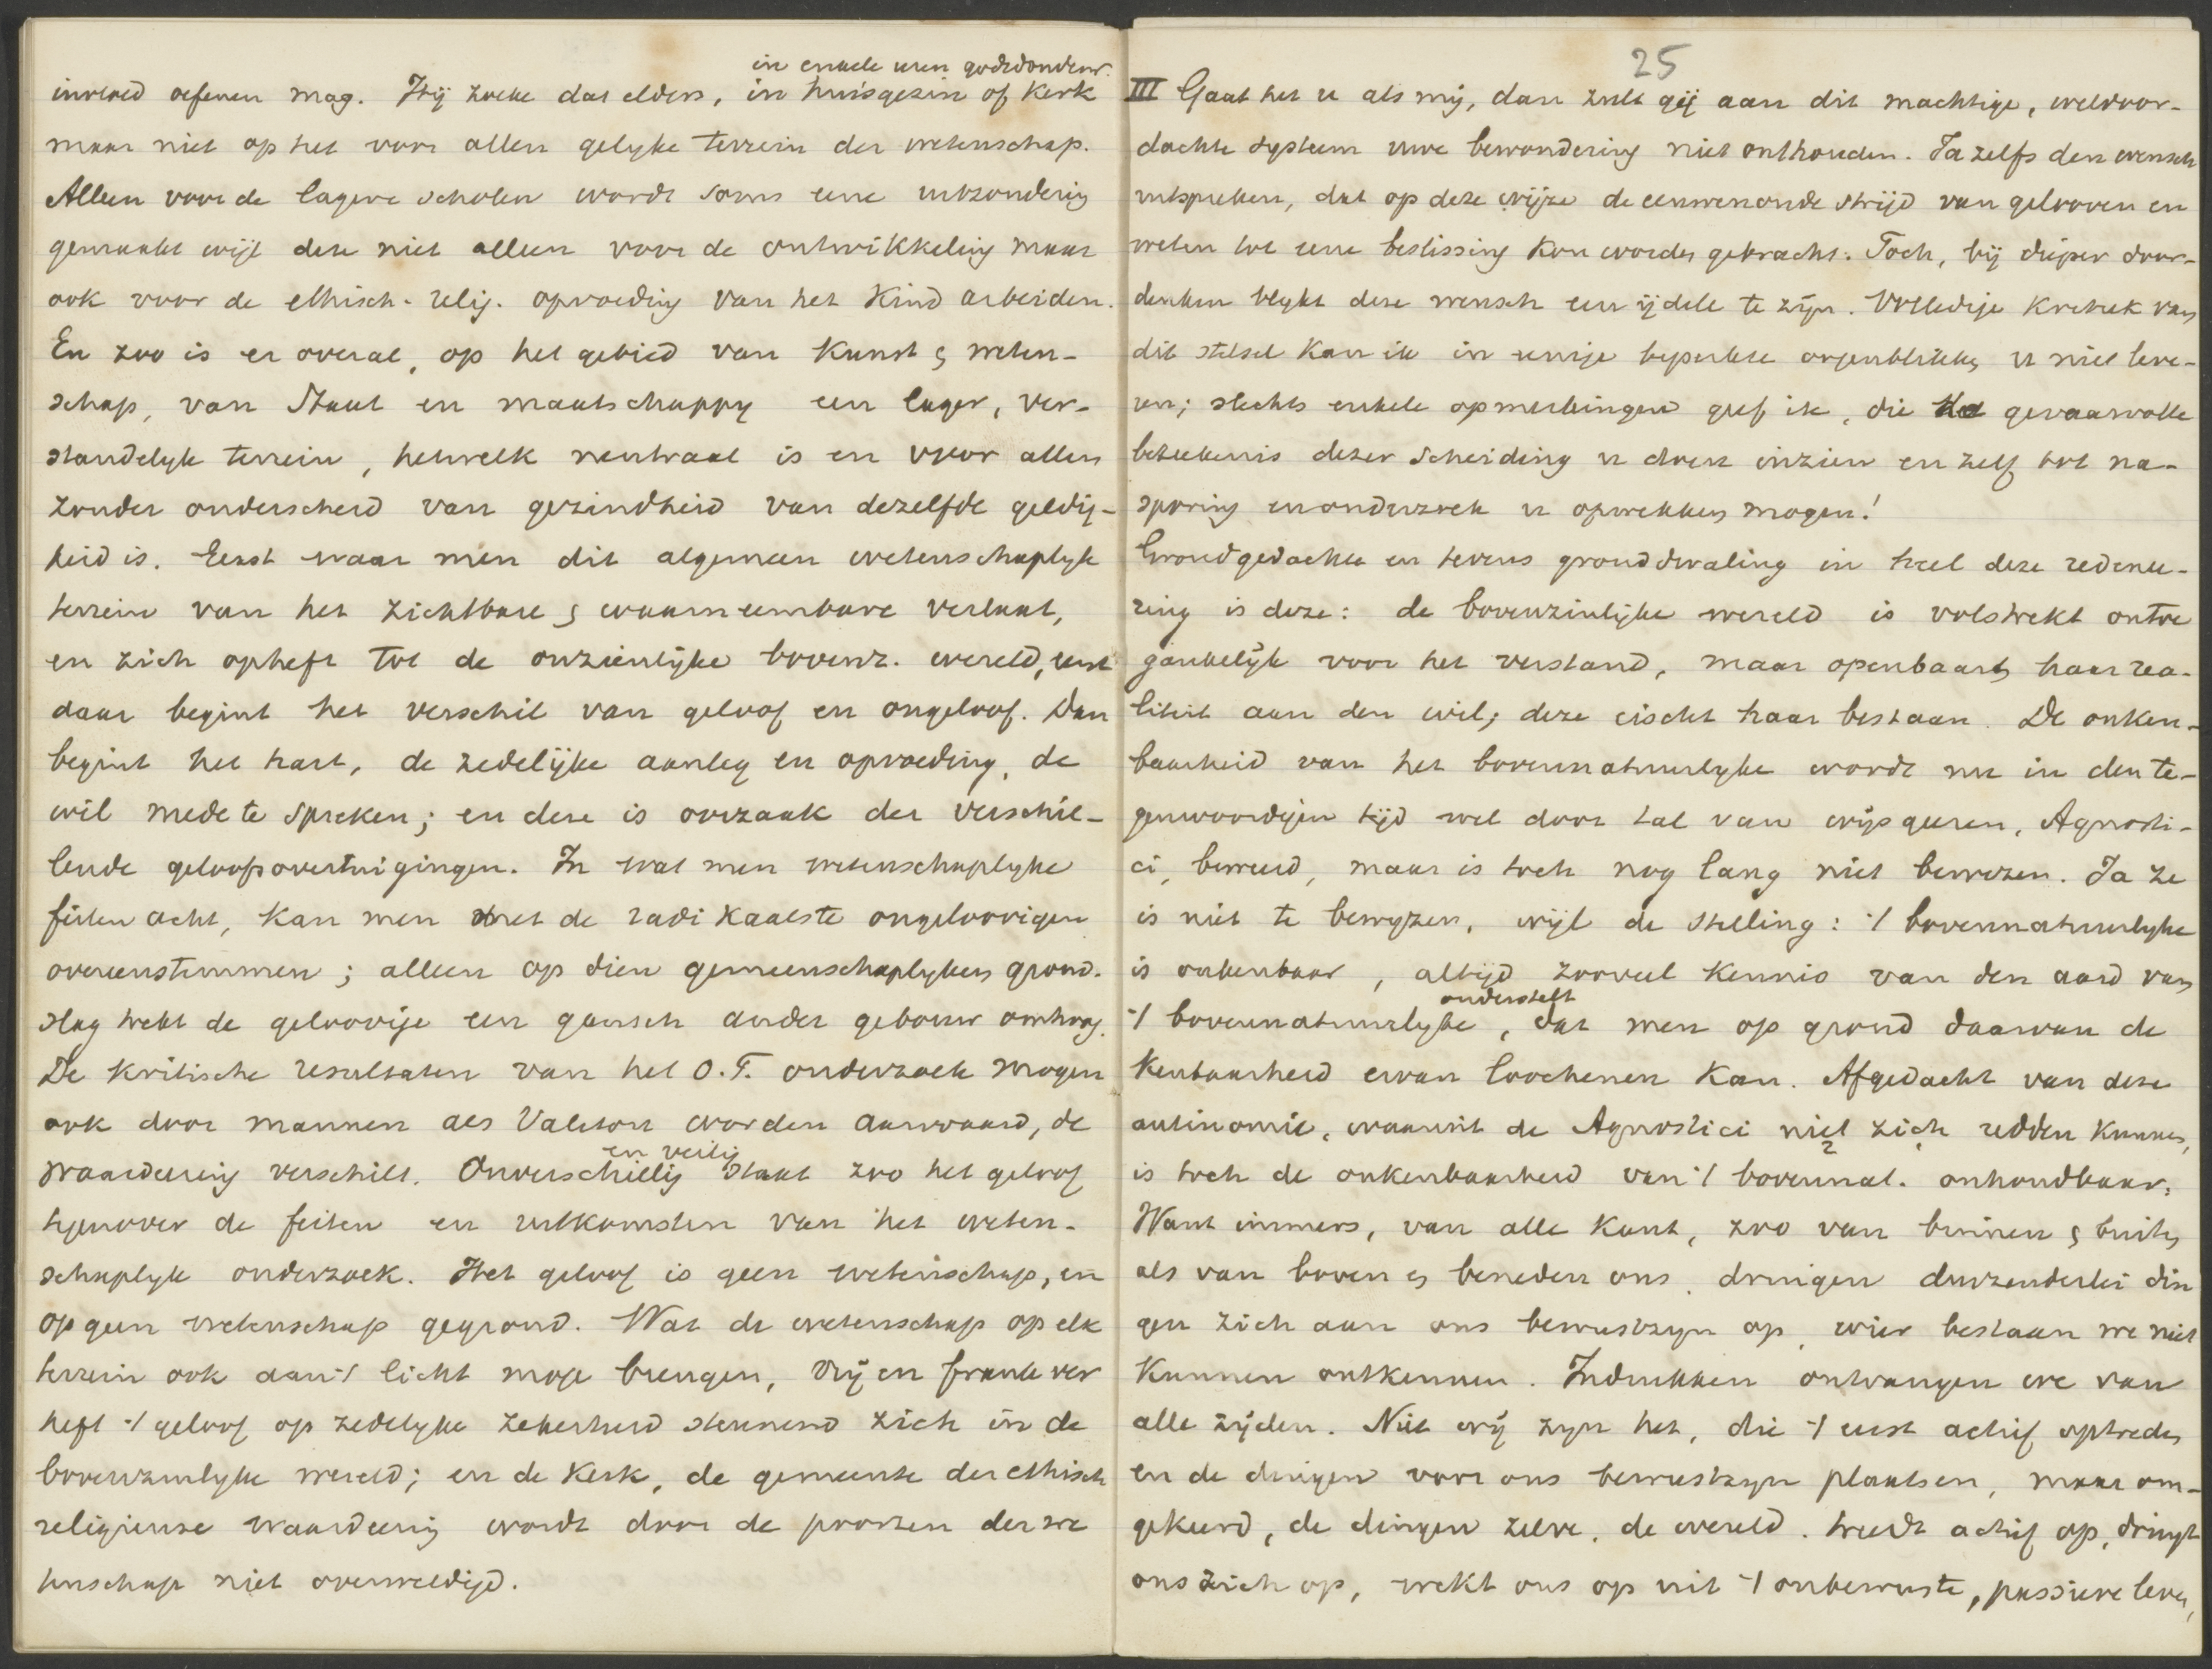 in enkele uren godsdonderw.
invloed oefenen mag. Hij zoeke dat elders, in huisgezin of Kerk
maar niet op het voor allen gelyke terrein der wetenschap.
Alleen voor de lagere scholen wordt soms eene uitzondering
gemaakt wijl deze niet alleen voor de ontwikkeling maar
ook voor de ethisch-relig. opvoeding van het Kind arbeiden.
En zoo is er overal, op het gebied van Kunst & weten-
schap, van Staat en maatschappy een lager, ver-
standelyk terrein, hetwelk neutraal is en voor allen
zonder onderscheid van gezindheid van dezelfde geldig-
heid is. Eerst waar men dit algemeen wetenschaplyk
terrein van het zichtbare & waarneembare verlaat,
en zich opheft tot de onzienlijke bovenz. wereld, eerst
daar begint het verschil van geloof en ongeloof. Dan
begint het hart, de zedelijke aanleg en opvoeding, de
wil mede te spreken; en deze is oorzaak der verschil-
lende geloofsovertuigingen. In wat men wetenschaplyke
feiten acht, kan men met de radikaalste ongeloovigen
overeenstemmen; alleen op dien gemeenschaplyken grond-
slag trekt de geloovige een gansch ander gebouw omhoog.
De kritische resultaten van het O.T. onderzoek mogen
ook door mannen als Valeton worden aanvaard, de
waardeering verschilt. Onverschillig en veilig staat zoo het geloof
tegenover de feiten en uitkomsten van het weten-
schaplyk onderzoek. Het geloof is geen wetenschap, en
op geen wetenschap gegrond. Wat de wetenschap op elk
terrein ook aan 't licht moge brengen, vrij en frank ver
heft 't geloof op zedelyke zekerheid steunend zich in de
bovenzinlyke wereld; en de Kerk, de gemeente der ethisch
religieuse waardeering wordt door de poorten der we
tenschap niet overweldigd.
25
III Gaat het u als mij, dan zult gij aan dit machtige, weldoor-
dachte systeem uwe bewondering niet onthouden. Ja zelfs den wensch
uitspreken, dat op deze wijze de eeuwenoude strijd van gelooven en
weten tot eene beslissing kon worden gebracht. Toch, bij dieper door-
denken blykt deze wensch een ijdele te zijn. Volledige Kritiek van
dit stelsel kan ik in eenige beperkte oogenblikken u niet leve-
ren; slechts enkele opmerkingen geef ik, die de gevaarvolle
beteekenis dezer scheiding u doen inzien en zelf tot na-
sporing en onderzoek u opwekken mogen!
Grondgedachte en tevens gronddwaling in heel deze redenee-
ring is deze: de bovenzinlijke wereld is volstrekt ontoe
gankelijk voor het verstand, maar openbaart haar rea-
liteit aan den wil; deze eischt haar bestaan. De onken-
baarheid van het bovennatuurlyke wordt nu in den te-
genwoordigen tijd wel door tal van wijsgeeren, Agnosti-
ci, beweerd, maar is toch nog lang niet bewezen. Ja ze
is niet te bewyzen, wijl de stelling: 't bovennatuurlyke
is onkenbaar, altijd zooveel kennis van den aard van
't bovennatuurlyke onderstelt, dat men op grond daarvan de
Kenbaarheid ervan loochenen kan. Afgedacht van deze
antinomie, waaruit de Agnostici niet zich redden kunnen,
is toch de onkenbaarheid van 't bovennat. onhoudbaar.
Want immers, van alle kant, zoo van binnen & buiten
als van boven en beneden ons, dringen duizenderlei din
gen zich aan ons bewustzyn op, wier bestaan we niet
Kunnen ontkennen. Indrukken ontvangen we van
alle zijden. Niet wij zyn het, die 't eerst actief optreden
en de dingen voor ons bewustzyn plaatsen, maar om-
gekeerd, de dingen zelve, de wereld, treedt actief op, dringt
ons zich op, wekt ons op uit 't onbewuste, passieve leven,